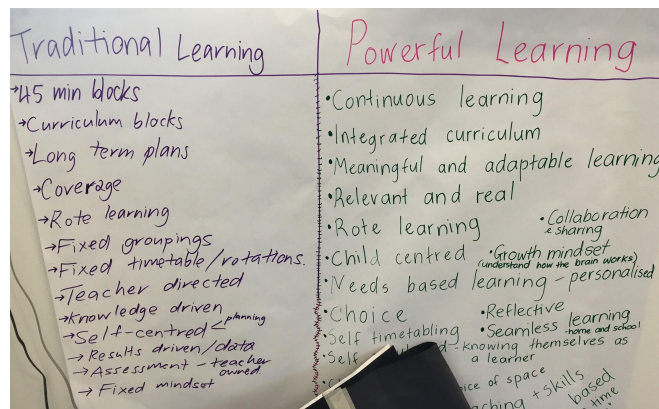 Traditional Learning
→45 min blocks
→Curriculum blocks
→Long term plans
→Coverage
→Rote learning
→Fixed groupings
→Fixed timetable/rotations.
→Teacher directed
→Knowledge driven
→Self-centred < planning
→ Results driven/data
→ Assessment - teacher owned.
→ Fixed mindset
Powerful Learning
•Continuous learning
•Integrated curriculum
•Meaningful and adaptable learning
•Relevant and real
•Rote learning
•Collaboration
& sharing
•Child centred
•Growth mindset
(understand how the brain works)
•Needs based learning - personalised
•Choice
•Reflective
•Self timetabling
•Seamless learning
-home and school
•Self - knowing themselves as
a learner
of space
+ skills
based
time